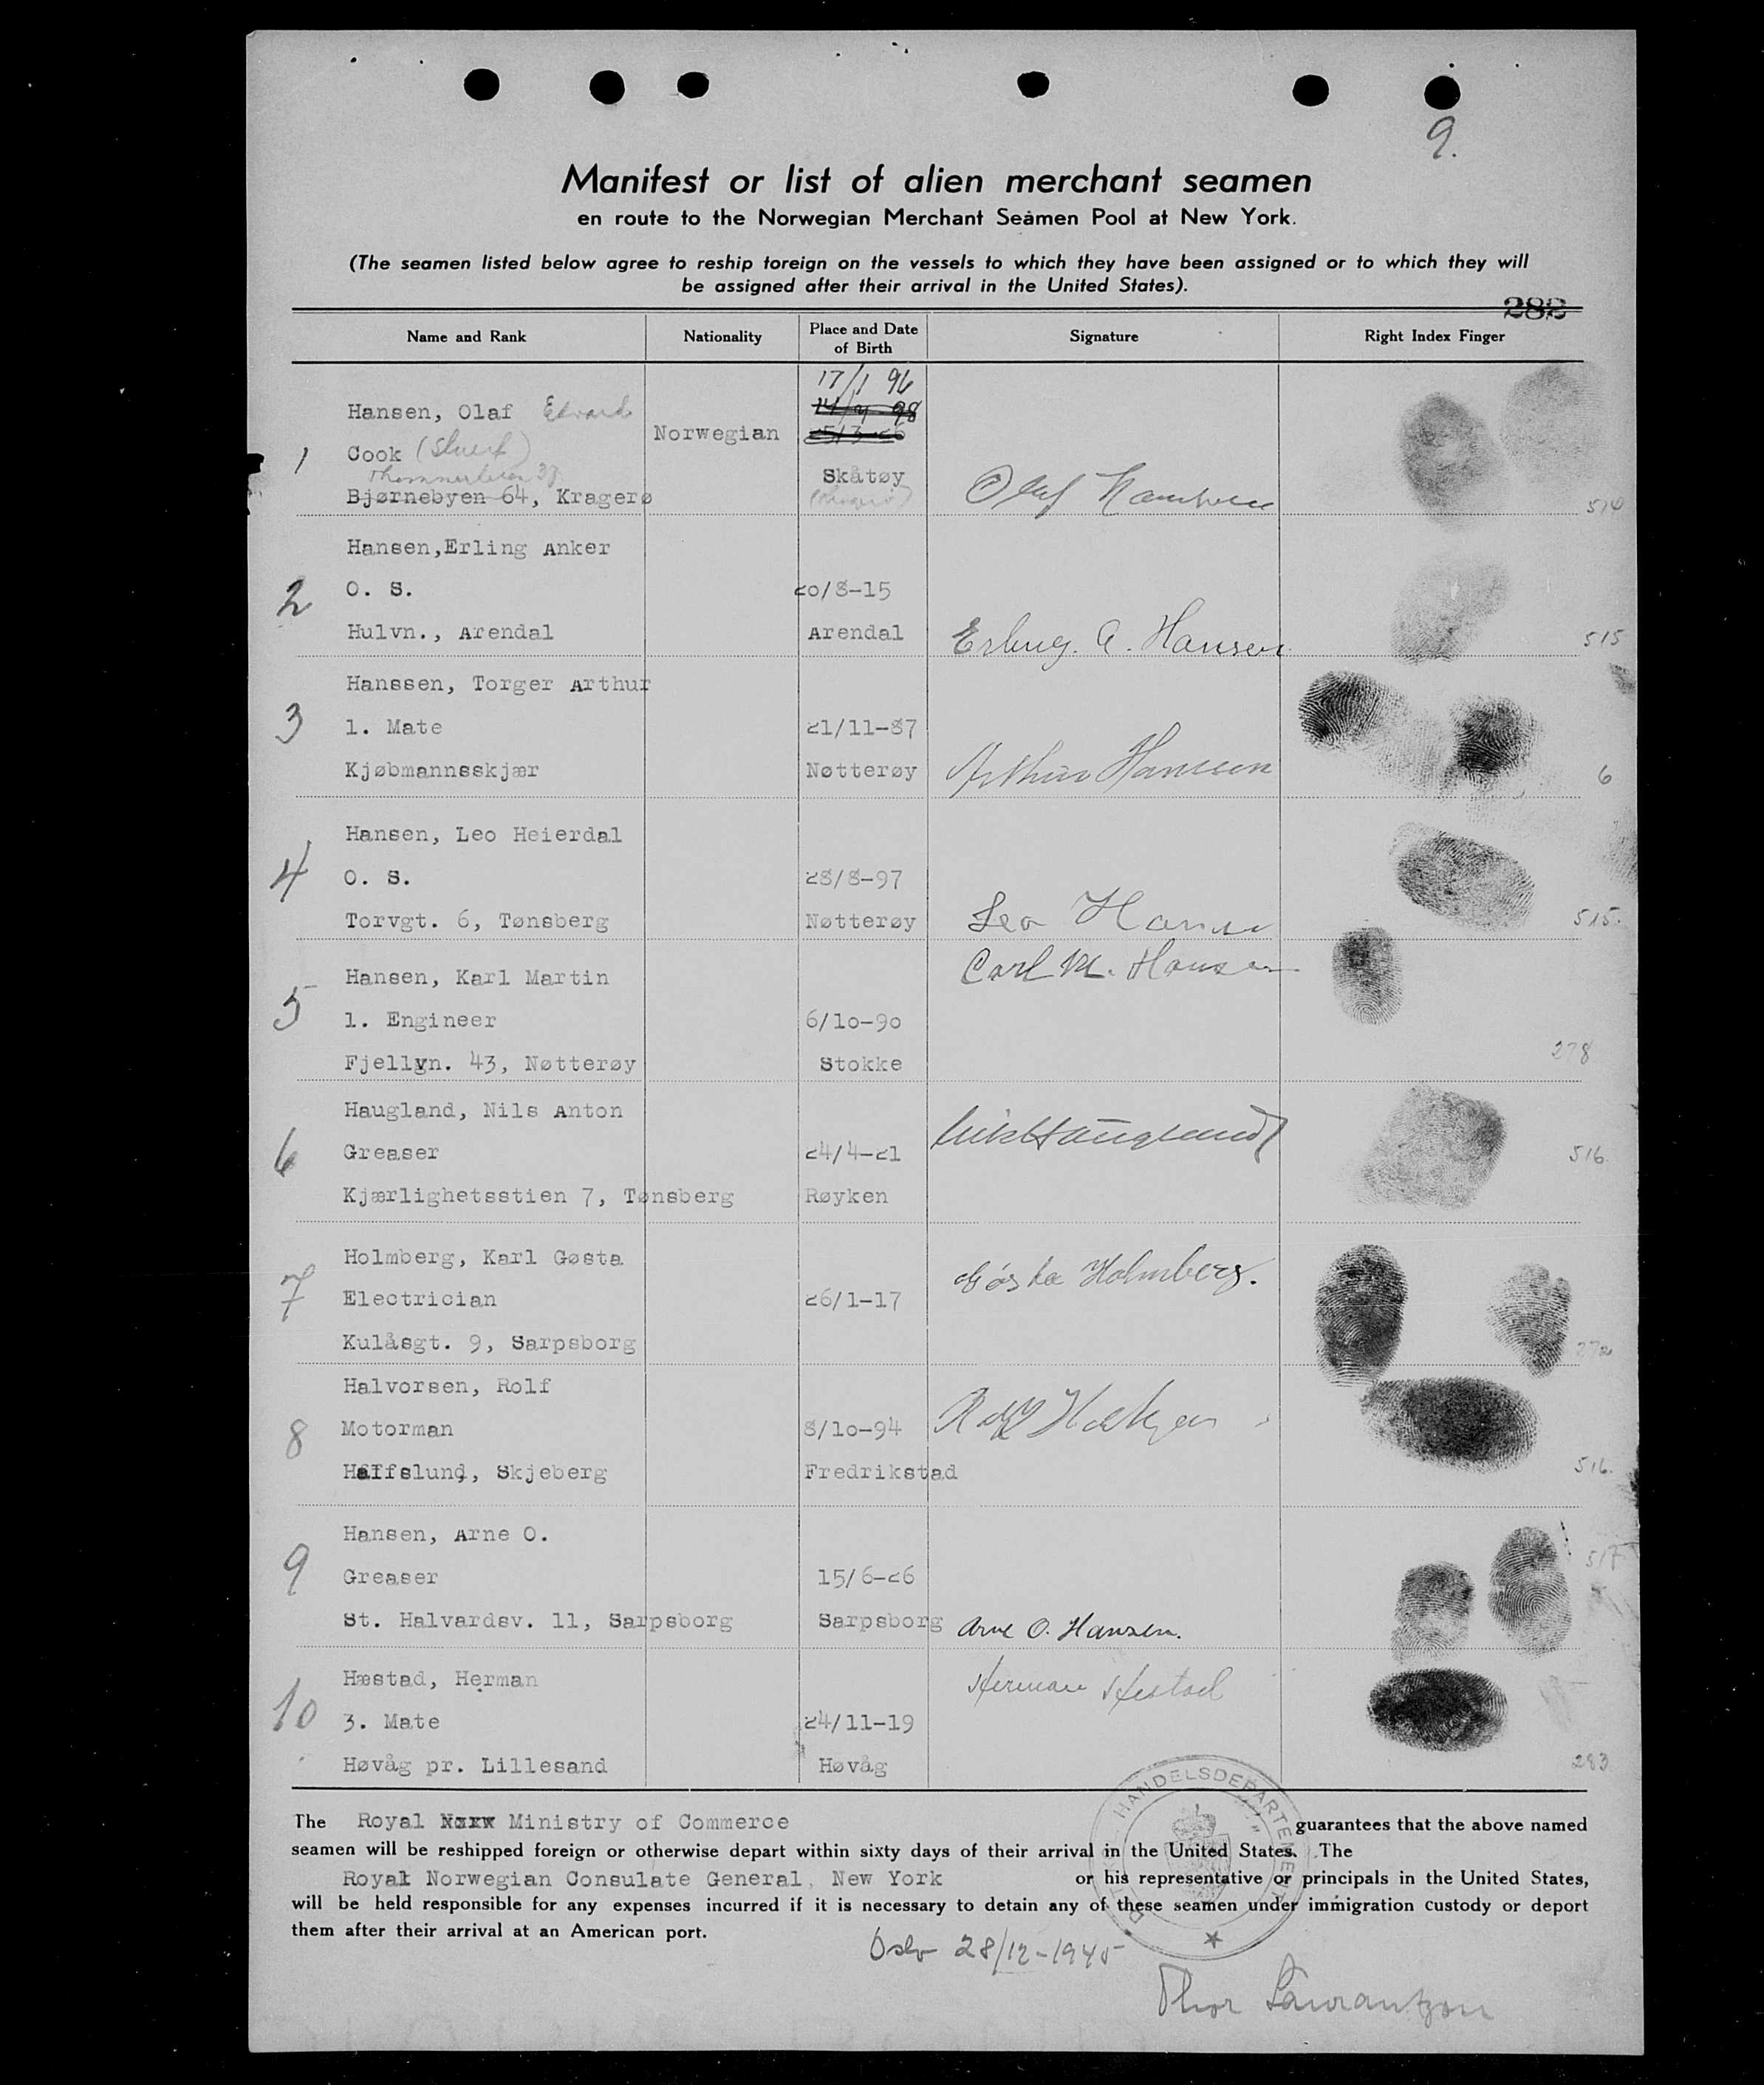 9.
Manifest or list of alien merchant seamen
en route to the Norwegian Merchant Seamen Pool at New York.
(The seamen listed below agree to reship foreign on the vessels to which they have been assigned or to which they will
be assigned after their arrival in the United States).
282
Name and Rank Nationality Place and Date of Birth Signature Right Index Finger
17/1 96
Hansen, Olaf Edvard
1 Cook Norwegian
Skåtøy
Bjørnebyen 64, Kragerø Olaf Hansen 514
Hansen, Erling Anker
2 O. S. 20/8-15
Hulvn., Arendal Arendal Erling. A. Hansen 515
Hanssen, Torger Arthur
3 1. Mate 21/11-87
Kjøbmannsskjær Nøtterøy Arthur Hanssen 6
Hansen, Leo Heierdal
4 O. S. 28/8-97
Torvgt. 6, Tønsberg Nøtterøy Leo Hansen 515.
Carl M. Hansen
Hansen, Karl Martin
5 1. Engineer 6/10-90
Fjellvn. 43, Nøtterøy Stokke 278
Haugland, Nils Anton
6 Greaser 24/4-21 Nils Haugland 516.
Kjærlighetsstien 7, Tønsberg Røyken
Holmberg, Karl Gøsta Gösta Holmberg.
7 Electrician 26/1-17
Kulåsgt. 9, Sarpsborg 272
Halvorsen, Rolf
8 Motorman 8/10-94 Rolf Halvorsen
Hafslund, Skjeberg Fredrikstad 516.
Hansen, Arne O. 517
9 Greaser 15/6-26
St. Halvardsv. 11, Sarpsborg Sarpsborg Arne O. Hansen.
Hæstad, Herman Herman Hestad
10 3. Mate 24/11-19
Høvåg pr. Lillesand Høvåg 283
HANDELSDEPARTEMENT
The Royal Ministry of Commerce guarantees that the above named
seamen will be reshipped foreign or otherwise depart within sixty days of their arrival in the United States. The
Royal Norwegian Consulate General, New York or his representative or principals in the United States,
will be held responsible for any expenses incurred if it is necessary to detain any of these seamen under immigration custody or deport
them after their arrival at an American port.
Oslo 28/12-1945
Thor Laurantzon